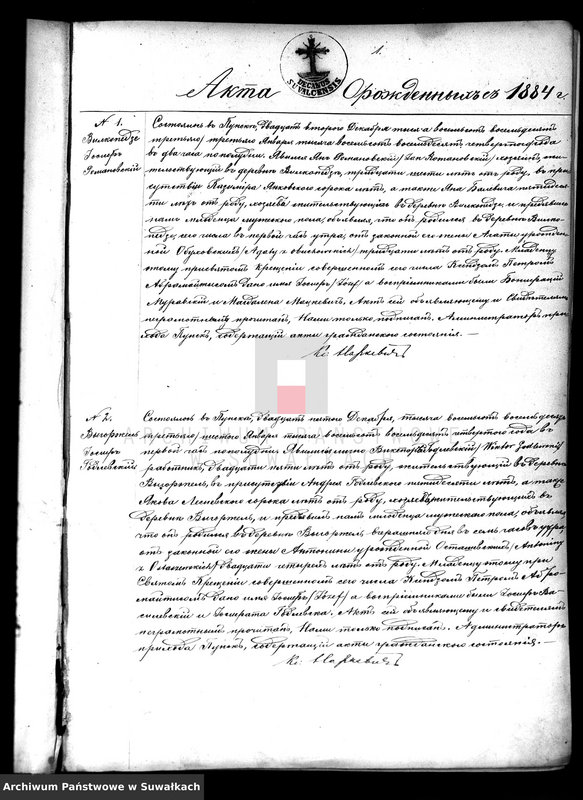 1.
DECANUS SUVALCENSIS
Акта Орожденныхъ съ 1884 г.
N 1.
Вилкопедзе
Іосифъ
Романовскій
Состоялось въ Пунскѣ, двадцать втораго Декабря тысяча восемьсотъ восемьдесятъ
третьяго /третьяго Января тысяча восемьсотъ восемьдесятъ четвертаго года
въ два часа пополудни. Явился Янъ Романовскій /Jan Romanowski/ хозяинъ, жи-
тельствующій въ деревнѣ тридцати шести лѣтъ отъ роду, въ при-
сутствіи Казимира Янковскаго сорока лѣтъ, а также Яна пятидеся-
ти лѣтъ отъ роду, хозяевъ жительствующихъ въ деревнѣ и предъявилъ
намъ младенца мужескаго пола, объявляя, что онъ родился въ деревнѣ Вилко-
педзе, сего числа въ первой часъ утра, отъ законной его жены Агаты урожден-
ной /Agaty z тридцати лѣтъ отъ роду. Младенцу
этому при святомъ крещеніи совершенномъ сего числа Ксендзомъ Петромъ
дано имя Іосифъ /Józef/ а воспріемниками были
и Магдалена Мацкевичъ. Актъ сей объявляющему и свидѣтелямъ
неграмотнымъ прочитанъ, Нами только подписанъ. Администраторъ при-
хода Пунскъ, содержащій акты гражданскаго состоянія. —
Кс. Маркевичъ
N 2.
Выгоржель
Іосифъ
Состоялось въ Пунскѣ, двадцать пятаго Декабря, тысяча восемьсотъ восемьдесятъ
третьяго /шестаго Января тысяча восемьсотъ восемьдесятъ четвертаго года въ
первой часъ пополудни. Явился лично Викторъ /Wiktor
работникъ, двадцати пяти лѣтъ отъ роду, жительствующій въ деревнѣ
Выгоржель, въ присутствіи Андрея пятидесяти лѣтъ, а также
Якова сорока лѣтъ отъ роду, хозяевъ жительствующихъ въ
деревнѣ Выгоржель, и предъявилъ намъ младенца мужескаго пола, объявляя
что онъ родился въ деревнѣ Выгоржель вчерашняго дня въ семь часовъ утра,
отъ законной его жены Антонины урожденной /Antoniny
z двадцати четырехъ лѣтъ отъ роду. Младенцу этому при
Святомъ Крещеніи совершенномъ сего числа Ксендзомъ Петромъ
дано имя Іосифъ /Józef/ а воспріемниками были Іосифъ
и Актъ сей объявляющему и свидѣтелямъ
неграмотнымъ прочитанъ, Нами только подписанъ. Администраторъ
прихода Пунскъ, содержащій акты гражданскаго состоянія. —
Кс. Маркевичъ
Archiwum Państwowe w Suwałkach